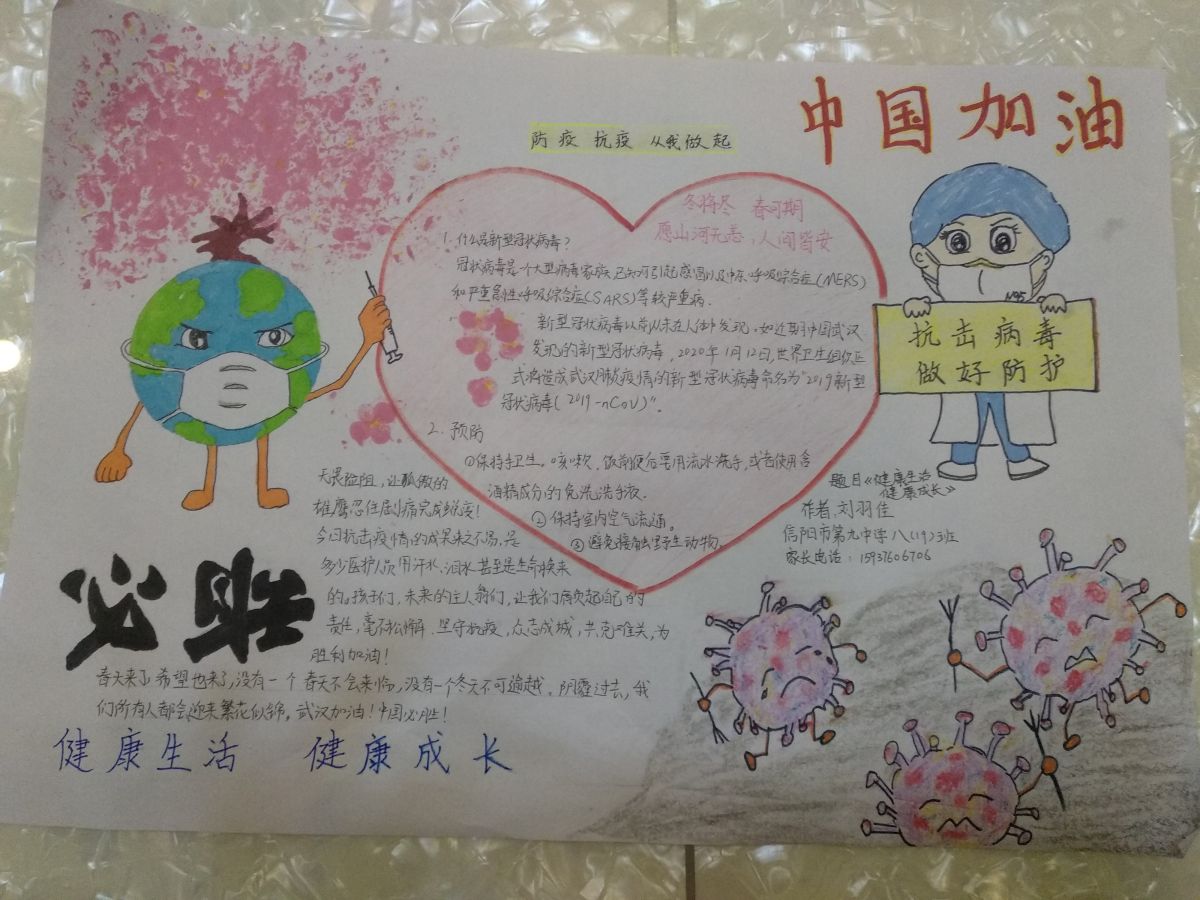 中国加油
防疫 抗疫 从我做起
冬将尽 春可期
愿山河无恙，人间皆安
1. 什么是新型冠状病毒？
冠状病毒是一个大型病毒家族，已知可引起感冒以及中东呼吸综合症(MERS)
和严重急性呼吸综合症(SARS)等较严重病.
新型冠状病毒以前从未在人体中发现，如近期中国武汉
发现的新型冠状病毒，2020年1月12日，世界卫生组织正
式将造成武汉肺炎疫情的新型冠状病毒命名为"2019新型
冠状病毒(2019-nCoV)"。
2. 预防
①保持手卫生。咳嗽，饭前便后要用流水洗手，或者使用含
酒精成分的免洗洗手液.
②保持室内空气流通。
③避免接触野生动物。
N95
抗击病毒
做好防护
题目《健康生活
健康成长》
作者：刘羽佳
信阳市第九中学八(19)班
家长电话：15937606706
无畏险阻，让孤傲的
雄鹰忍住剧痛完成蜕变！
今日抗击疫情的成果来之不易，是
多少医护人员用汗水、泪水甚至是生命换来
的。孩子们，未来的主人翁们，让我们肩负起自己的
责任，毫不松懈、坚守抗疫，众志成城，共克难关，为
胜利加油！
必胜
春天来了，希望也来了，没有一个春天不会来临，没有一个冬天不可逾越。阴霾过去，我
们所有人都会迎来繁花似锦。武汉加油！中国必胜！
健康生活 健康成长